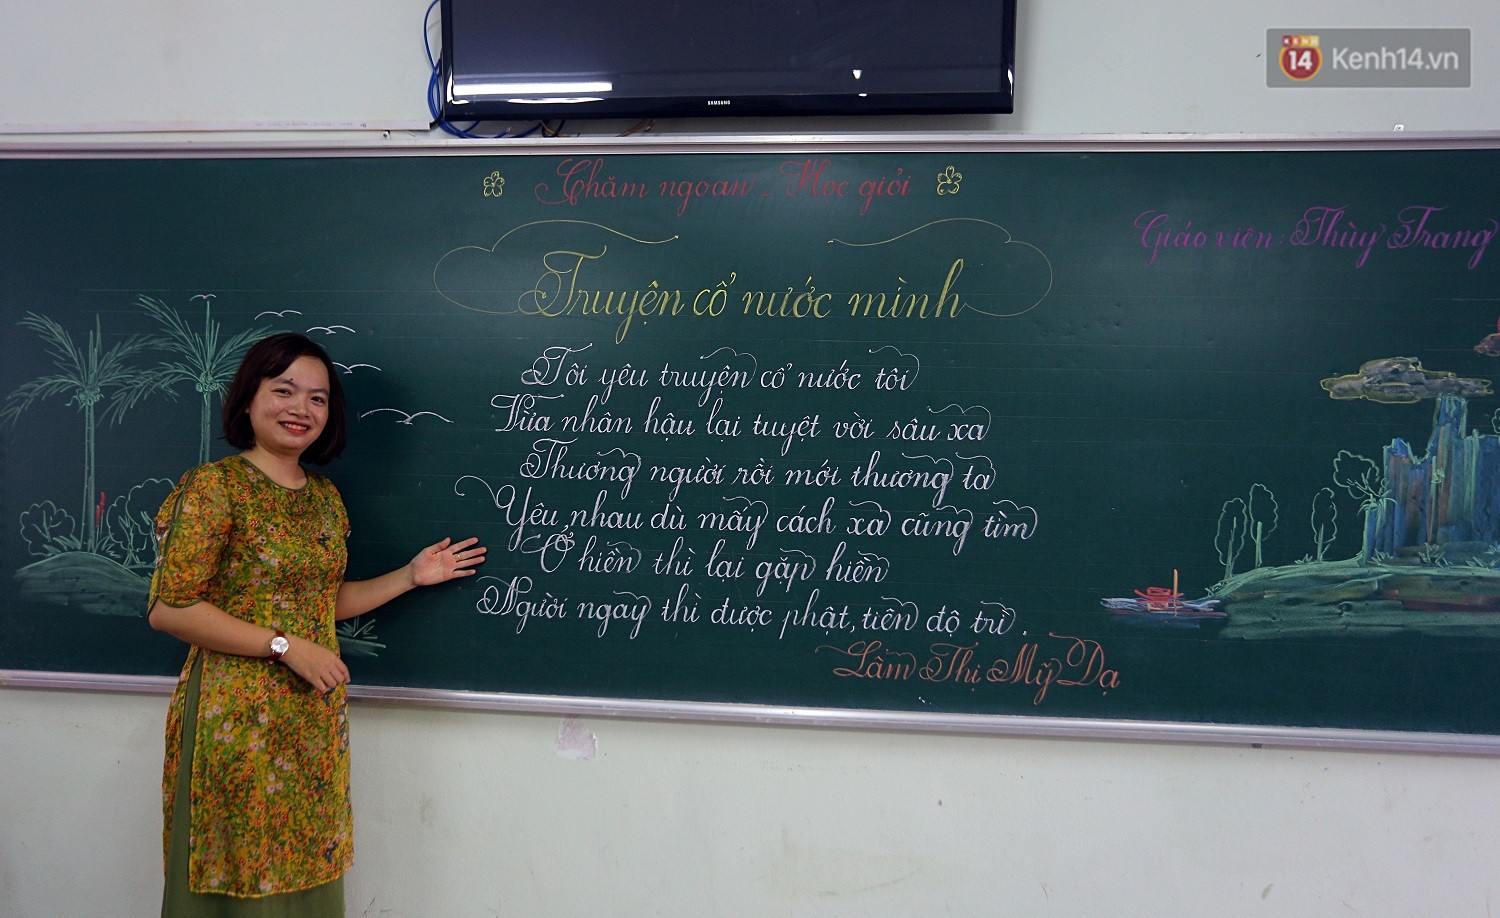 SAMSUNG
KENH 14 Kenh14.vn
Chăm ngoan - Học giỏi
Giáo viên: Thùy Trang
Truyện cổ nước mình
Tôi yêu truyện cổ nước tôi
Vừa nhân hậu lại tuyệt vời sâu xa
Thương người rồi mới thương ta
Yêu nhau dù mấy cách xa cũng tìm
Ở hiền thì lại gặp hiền
Người ngay thì được phật, tiên độ trì.
Lâm Thị Mỹ Dạ